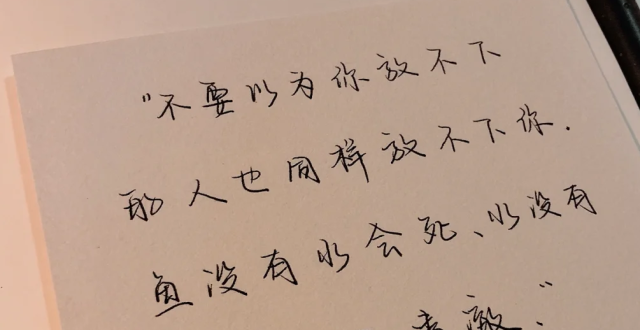 “不要以为你放不下
的人也同样放不下你.
鱼没有水会死、水没有
”